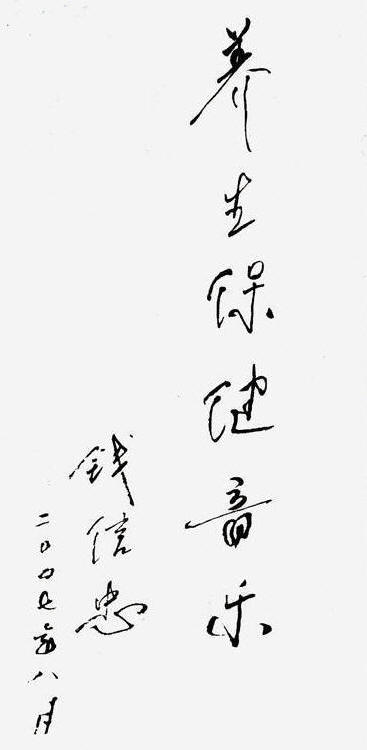 养生保健音乐
钱信忠
二〇〇七年八月